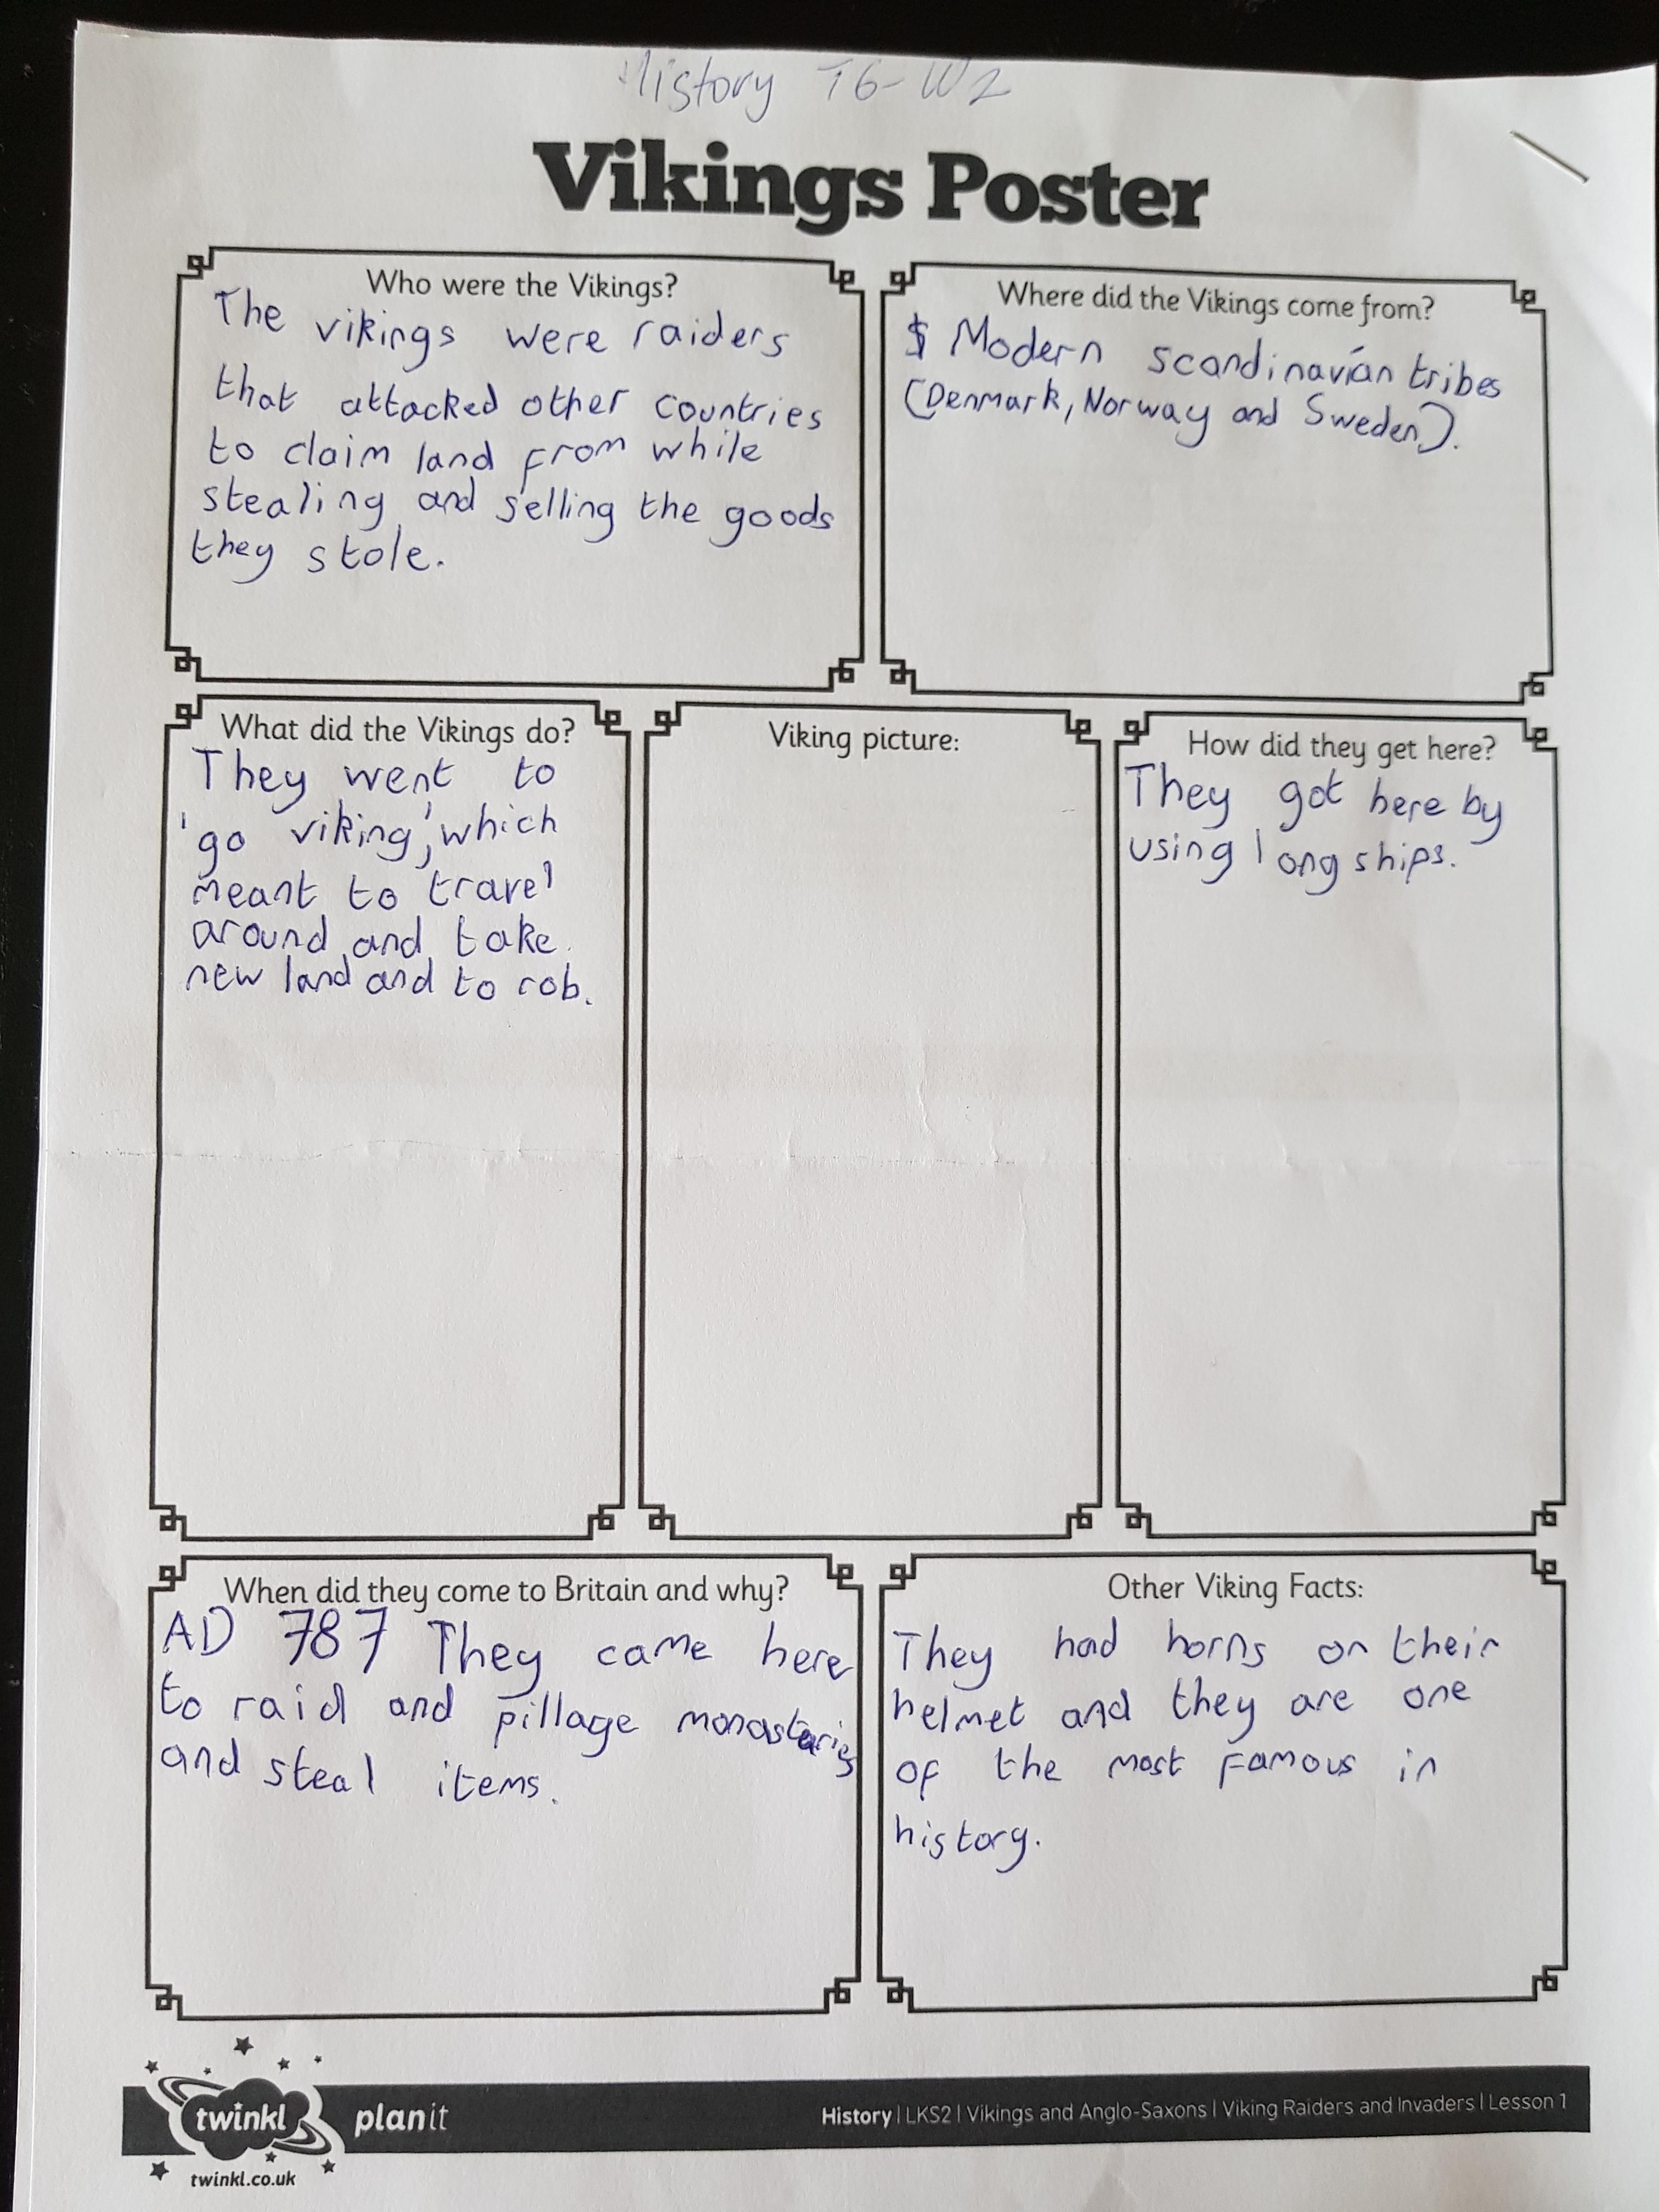 History T6-W2
Vikings Poster
Who were the Vikings?
The vikings were raiders
that attacked other countries
to claim land from while
stealing and selling the goods
they stole.
Where did the Vikings come from?
Modern scandinavian tribes
(Denmark, Norway and Sweden).
What did the Vikings do?
They went to
'go viking', which
meant to travel
around and take
new land and to rob.
Viking picture:
How did they get here?
They got here by
using long ships.
When did they come to Britain and why?
AD 787 They came here
to raid and pillage monasteries
and steal items.
Other Viking Facts:
They had horns on their
helmet and they are one
of the most famous in
history.
twinkl planit
History | LKS2 | Vikings and Anglo-Saxons | Viking Raiders and Invaders | Lesson 1
twinkl.co.uk